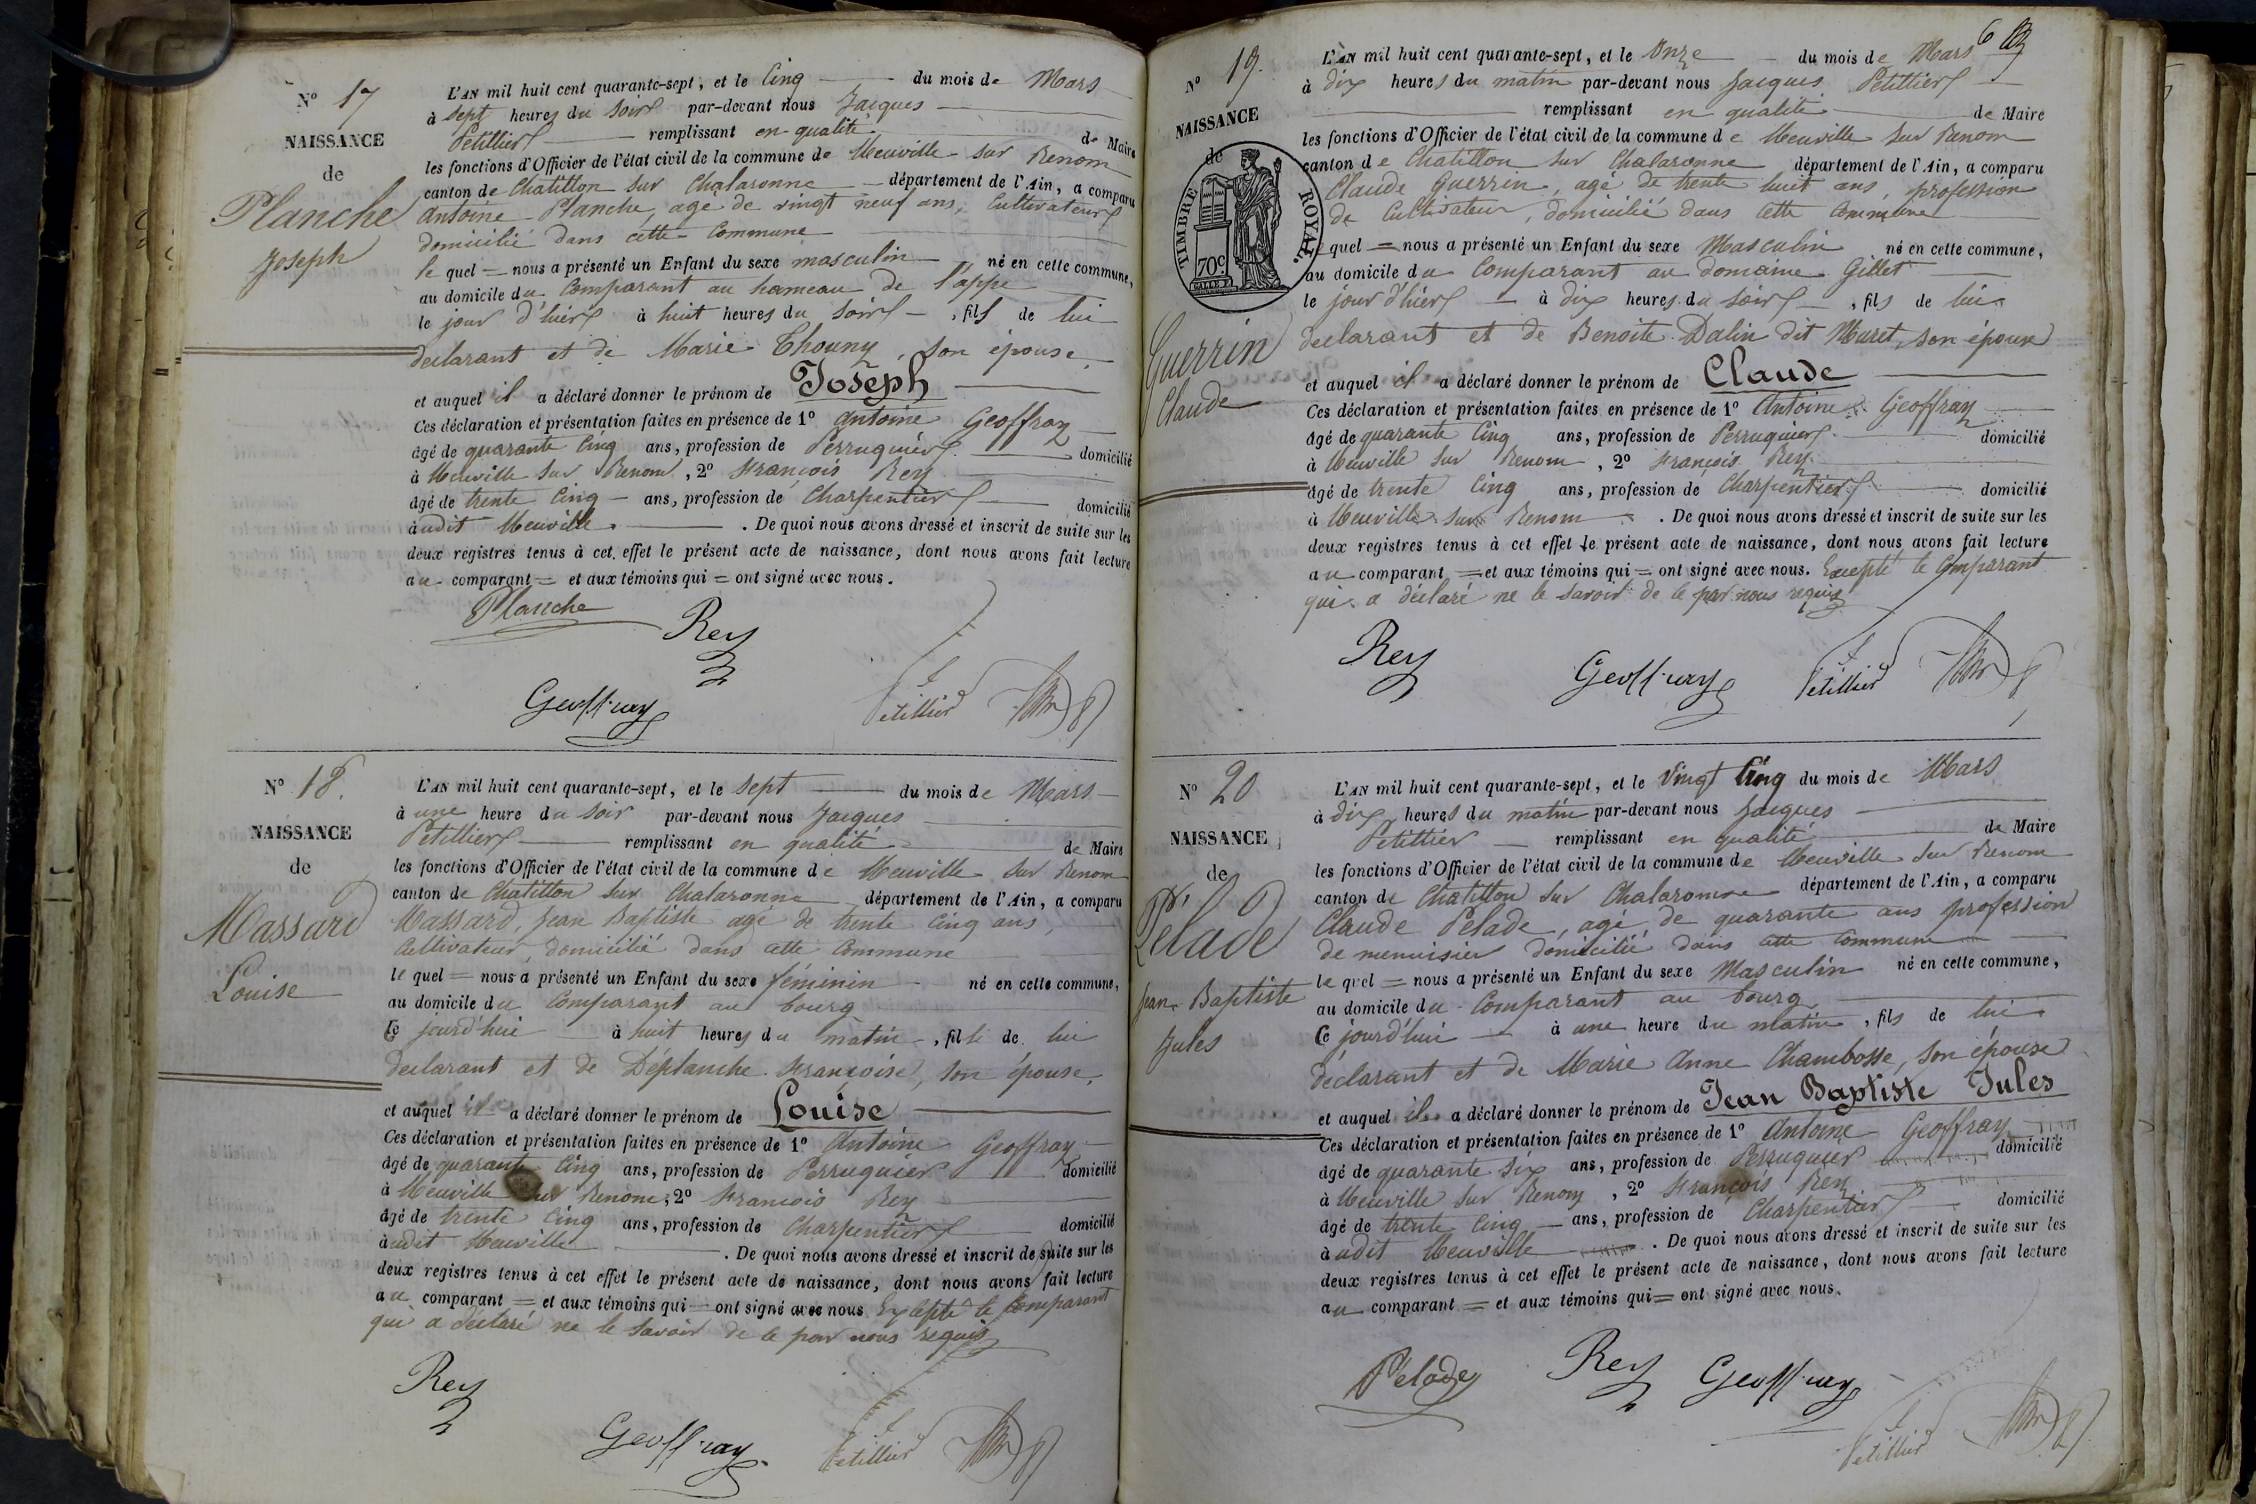 N° 17
NAISSANCE
de
Planche
Joseph
L'AN mil huit cent quarante-sept, et le Cinq du mois de Mars
à sept heures du soir par-devant nous Jacques
Petillier remplissant en qualité de Maire
les fonctions d'Officier de l'état civil de la commune de Neuville sur Renom
canton de Chatillon sur Chalaronne département de l'Ain, a comparu
Antoine Planche, agé de vingt neuf ans, Cultivateur
domicilié dans cette Commune
le quel = nous a présenté un Enfant du sexe masculin né en cette commune,
au domicile du Comparant au hameau de l'appe
le jour d'hier à huit heures du soir, fils de lui
declarant et de Marie Thouny, son épouse
et auquel il a déclaré donner le prénom de Joseph
Ces déclaration et présentation faites en présence de 1° Antoine Geoffray
âgé de quarante Cinq ans, profession de Perruquier domicilié
à Neuville sur Renom, 2° François Rey
âgé de trente Cinq ans, profession de Charpentier domicilié
à udit Neuville. De quoi nous avons dressé et inscrit de suite sur les
deux registres tenus à cet effet le présent acte de naissance, dont nous avons fait lecture
au comparant = et aux témoins qui = ont signé avec nous.
Planche
Rey
Geoffray
Petillier
N° 18.
NAISSANCE
de
Massard
Louise
L'AN mil huit cent quarante-sept, et le sept du mois de Mars
à une heure du soir par-devant nous Jacques
Petillier remplissant en qualité de Maire
les fonctions d'Officier de l'état civil de la commune de Neuville sur Renom
canton de Chatillon sur Chalaronne département de l'Ain, a comparu
Massard, Jean Baptiste agé de trente Cinq ans,
Cultivateur, domicilié dans cette Commune
le quel = nous a présenté un Enfant du sexe féminin né en cette commune,
au domicile du Comparant au bourg
Ce jourd'hui à huit heures du matin, fille de lui
declarant et de Déplanche Françoise, son épouse,
et auquel il a déclaré donner le prénom de Louise
Ces déclaration et présentation faites en présence de 1° Antoine Geoffray
âgé de quarante Cinq ans, profession de Perruquier domicilié
à Neuville sur Renom, 2° François Rey
âgé de trente Cinq ans, profession de Charpentier domicilié
à udit Neuville. De quoi nous avons dressé et inscrit de suite sur les
deux registres tenus à cet effet le présent acte de naissance, dont nous avons fait lecture
au comparant = et aux témoins qui = ont signé avec nous Excepté le Comparant
qui a déclaré ne le savoir de ce par nous requis
Rey
Geoffray
Petillier
6
N° 19.
NAISSANCE
de
TIMBRE ROYAL.
70c
Guerrin
Claude
L'AN mil huit cent quarante-sept, et le Onze du mois de Mars
à dix heures du matin par-devant nous Jacques Petillier
remplissant en qualité de Maire
les fonctions d'Officier de l'état civil de la commune de Neuville sur Renom
canton de Chatillon sur Chalaronne département de l'Ain, a comparu
Claude Guerrin, agé de trente huit ans, profession
de Cultivateur, domicilié dans cette Commune
le quel = nous a présenté un Enfant du sexe Masculin né en cette commune,
au domicile du Comparant au domaine Gillet
le jour d'hier à dix heures du soir, fils de lui
declarant et de Benoite Dalin dit Muret, son épouse
et auquel il a déclaré donner le prénom de Claude
Ces déclaration et présentation faites en présence de 1° Antoine Geoffray
âgé de quarante Cinq ans, profession de Perruquier domicilié
à Neuville sur Renom, 2° François Rey
âgé de trente Cinq ans, profession de Charpentier domicilié
à Neuville sur Renom. De quoi nous avons dressé et inscrit de suite sur les
deux registres tenus à cet effet le présent acte de naissance, dont nous avons fait lecture
au comparant = et aux témoins qui = ont signé avec nous. Excepté le Comparant
qui a déclaré ne le savoir de ce par nous requis
Rey
Geoffray
Petillier
N° 20
NAISSANCE
de
Pelade
Jean-Baptiste
Jules
L'AN mil huit cent quarante-sept, et le Vingt Cinq du mois de Mars
à dix heures du matin par-devant nous Jacques
Petillier remplissant en qualité de Maire
les fonctions d'Officier de l'état civil de la commune de Neuville sur Renom
canton de Chatillon sur Chalaronne département de l'Ain, a comparu
Claude Pelade, agé de quarante ans profession
de menuisier domicilié dans cette Commune
le quel = nous a présenté un Enfant du sexe Masculin né en cette commune,
au domicile du Comparant au bourg
Ce jourd'hui à une heure du matin, fils de lui
déclarant et de Marie Anne Chambosse, son épouse
et auquel il a déclaré donner le prénom de Jean Baptiste Jules
Ces déclaration et présentation faites en présence de 1° Antoine Geoffray
âgé de quarante six ans, profession de Perruquier domicilié
à Neuville sur Renom, 2° François Rey
âgé de trente Cinq ans, profession de Charpentier domicilié
à udit Neuville. De quoi nous avons dressé et inscrit de suite sur les
deux registres tenus à cet effet le présent acte de naissance, dont nous avons fait lecture
au comparant = et aux témoins qui = ont signé avec nous.
Pelade
Rey
Geoffray
Petillier